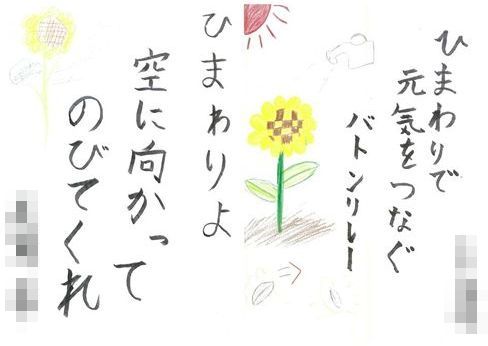 ひまわりで
元気をつなぐ
バトンリレー
ひまわりよ
空に向かって
のびてくれ